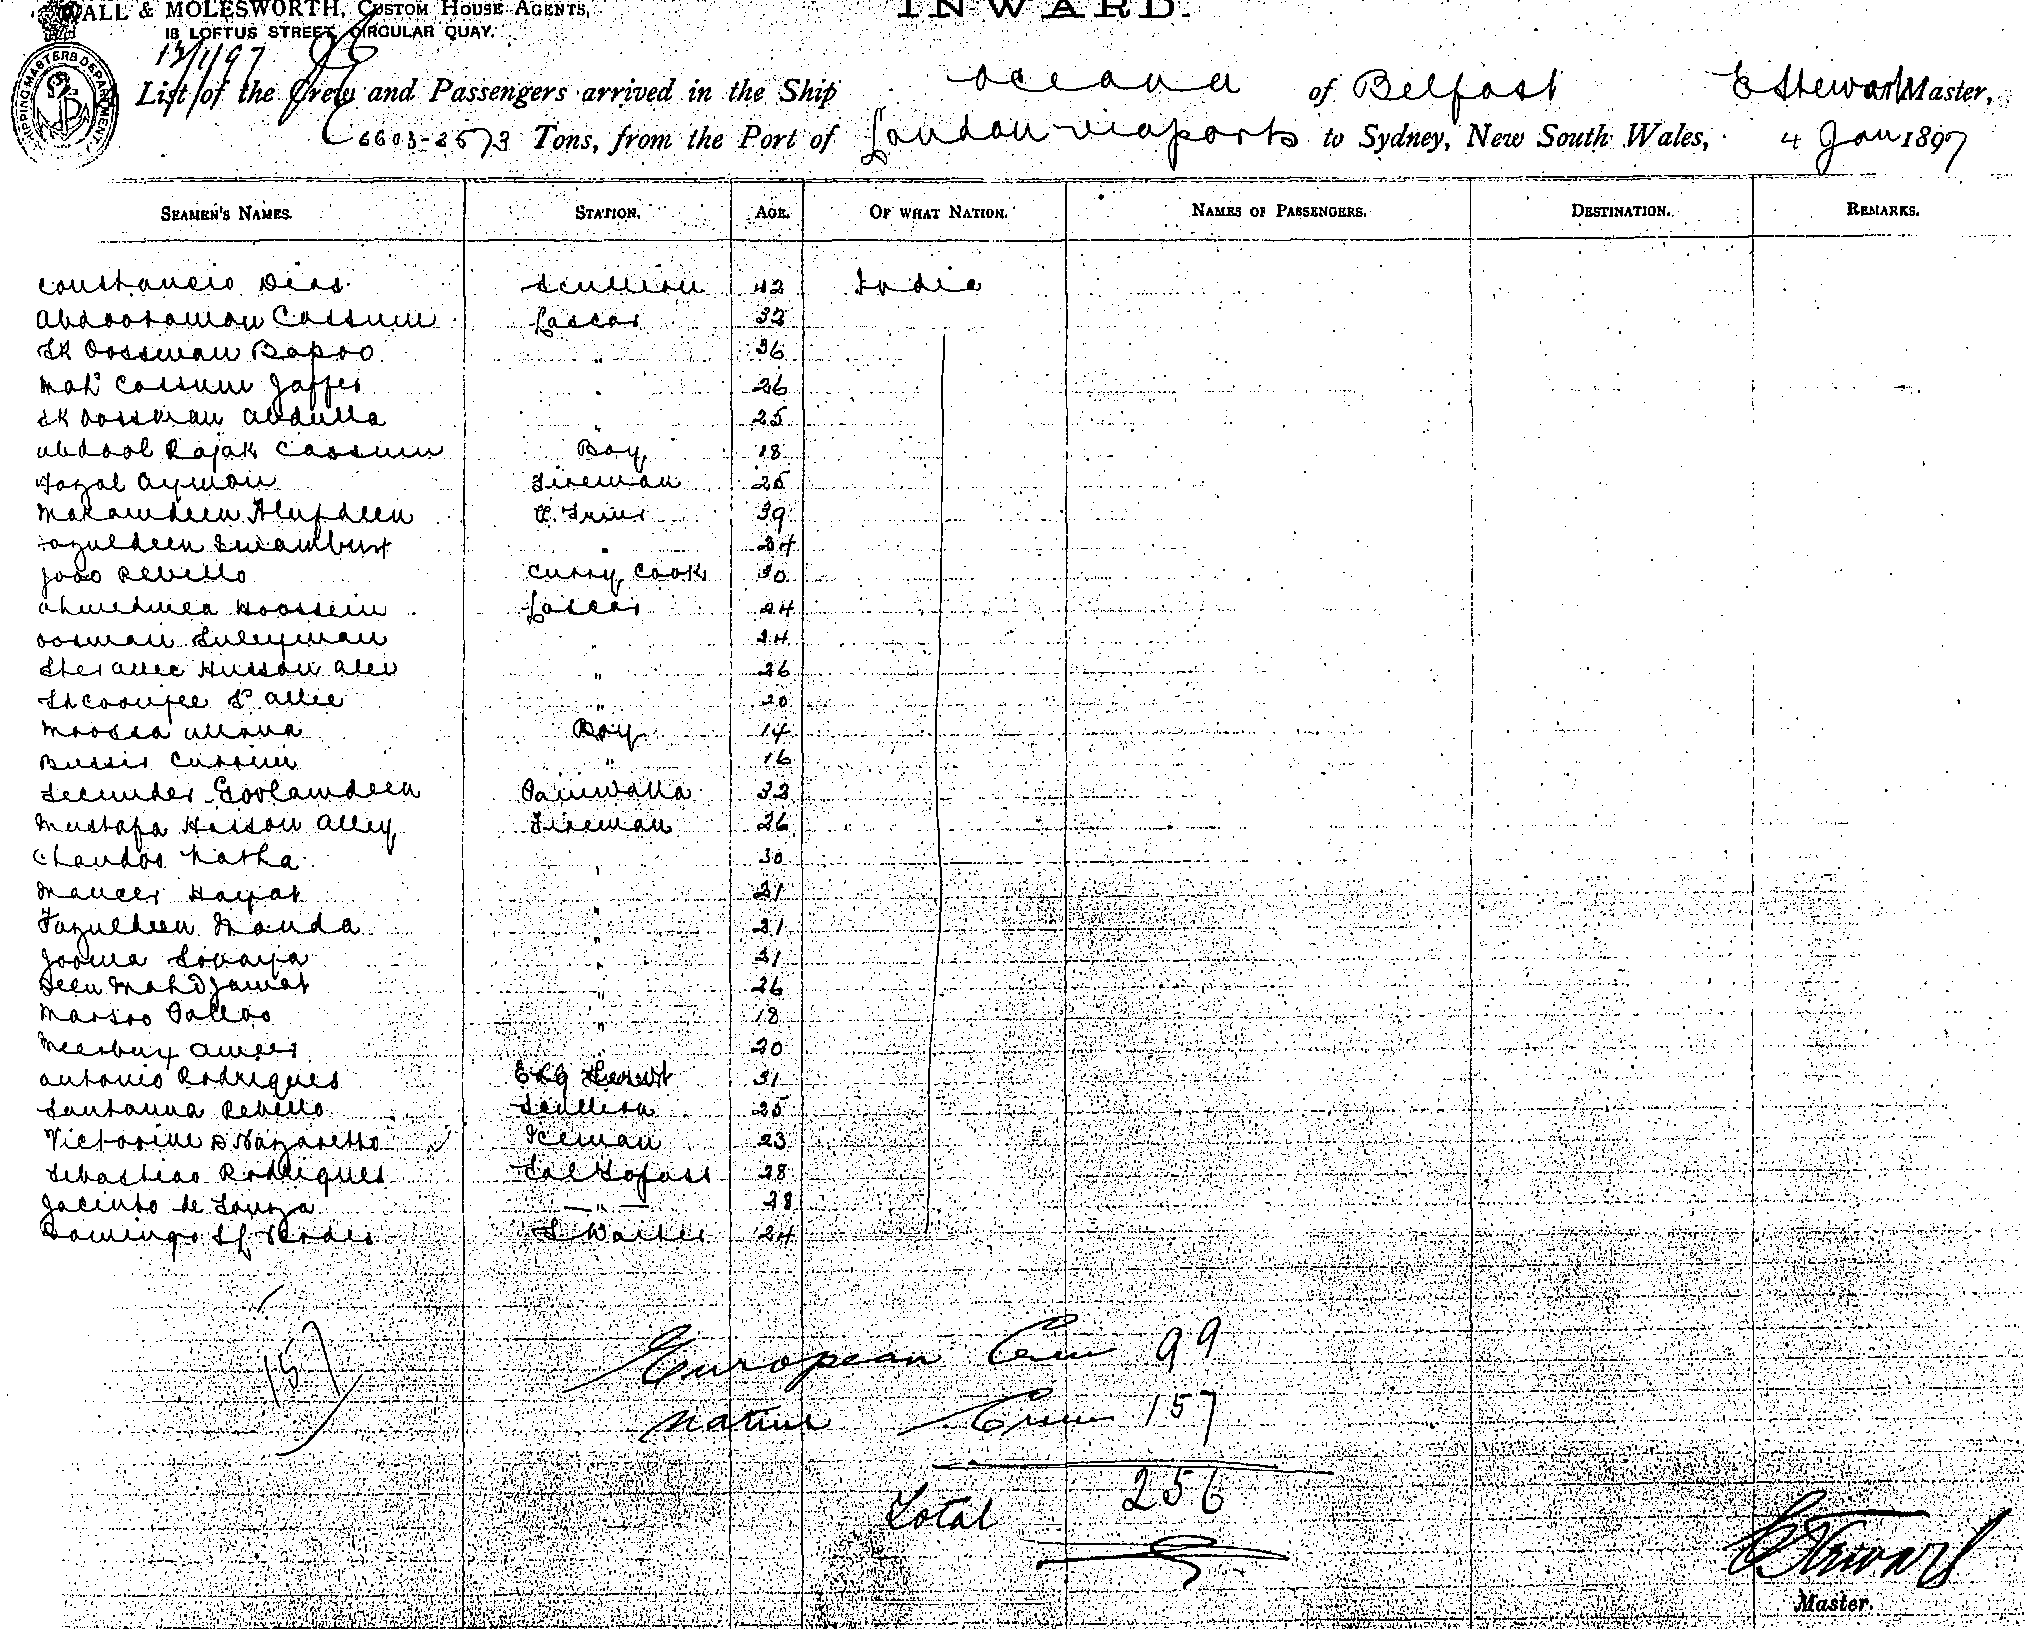 WALL & MOLESWORTH, CUSTOM HOUSE AGENTS,
INWARD.
18 LOFTUS STREET, CIRCULAR QUAY.
12/1/97
SHIPPING MASTERS DEPARTMENT
List of the Crew and Passengers arrived in the Ship Oceana of Belfast E Stewart Master,
6603-2573 Tons, from the Port of London via ports to Sydney, New South Wales, 4 Jan 1897
SEAMEN'S NAMES. STATION. AGE. OF WHAT NATION. NAMES OF PASSENGERS. DESTINATION. REMARKS.
Constancio Dias Scullion 42 India
Abdooraman Cassum Lascar 32
Sk Oossman Bapoo " 36
Mahd Cassum Jaffer " 26
Sk Oossman Abdulla " 25
Abdool Rajak Cassum Boy 18
Fazal Aymon Fireman 25
39
Fazuldeen " 24
Joao Rebello Curry Cook 30
Hoossein Lascar 24
Oosman Suleyman " 24
Sher Allee Husson Alli " 26
Allee " 20
Moossa Boy 14
Currim " 16
Secunder Goolamdeen Paniwalla 33
Mustafa Hasson Alley Fireman 26
Chandoo Natha " 30
Hayat " 21
Fazuldeen Nanda " 21
Jooma " 21
Deen Mahd Jamat " 26
" 18
Meerbux Ameer " 20
Antonio Rodrigues 31
Santanna Rebello Scullion 25
Victorine D Nazaretto Iceman 23
Sebastiao Rodrigues Sal Topass 28
Jacinto de Souza " 28
Domingo 24
157
European Crew 99
Native Crew 157
Total 256
E Stewart
Master.